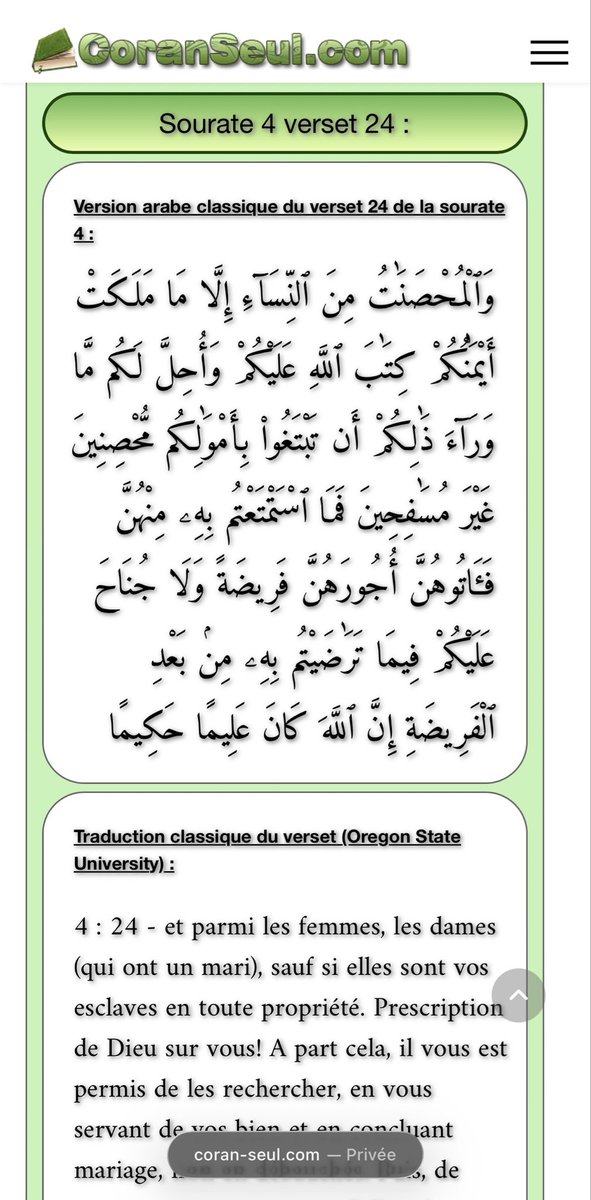 CoranSeul.com
Sourate 4 verset 24 :
Version arabe classique du verset 24 de la sourate
4 :
وَٱلْمُحْصَنَٰتُ مِنَ ٱلنِّسَآءِ إِلَّا مَا مَلَكَتْ
أَيْمَٰنُكُمْ كِتَٰبَ ٱللَّهِ عَلَيْكُمْ وَأُحِلَّ لَكُم مَّا
وَرَآءَ ذَٰلِكُمْ أَن تَبْتَغُوا۟ بِأَمْوَٰلِكُم مُّحْصِنِينَ
غَيْرَ مُسَٰفِحِينَ فَمَا ٱسْتَمْتَعْتُم بِهِۦ مِنْهُنَّ
فَـَٔاتُوهُنَّ أُجُورَهُنَّ فَرِيضَةً وَلَا جُنَاحَ
عَلَيْكُمْ فِيمَا تَرَٰضَيْتُم بِهِۦ مِنۢ بَعْدِ
ٱلْفَرِيضَةِ إِنَّ ٱللَّهَ كَانَ عَلِيمًا حَكِيمًا
Traduction classique du verset (Oregon State
University) :
4 : 24 - et parmi les femmes, les dames
(qui ont un mari), sauf si elles sont vos
esclaves en toute propriété. Prescription
de Dieu sur vous! A part cela, il vous est
permis de les rechercher, en vous
servant de vos bien et en concluant
mariage, de
coran-seul.com — Privée